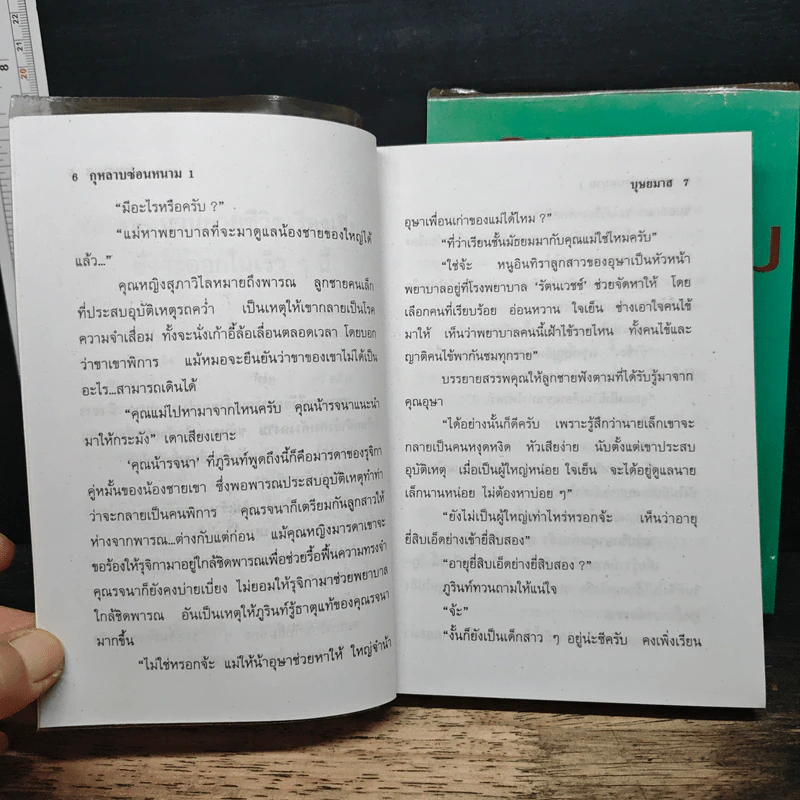 6 กุหลาบซ่อนหนาม 1
“มีอะไรหรือครับ ?”
“แม่หาพยาบาลที่จะมาดูแลน้องชายของใหญ่ได้
แล้ว...”
คุณหญิงสุภาวิไลหมายถึงพารณ ลูกชายคนเล็ก
ที่ประสบอุบัติเหตุรถคว่ำ เป็นเหตุให้เขากลายเป็นโรค
ความจำเสื่อม ทั้งจะนั่งเก้าอี้ล้อเลื่อนตลอดเวลา โดยบอก
ว่าขาเขาพิการ แม้หมอจะยืนยันว่าขาของเขาไม่ได้เป็น
อะไร...สามารถเดินได้
“คุณแม่ไปหามาจากไหนครับ คุณน้ารจนาแนะนำ
มาให้กระมัง” เดาเสียงเยาะ
‘คุณน้ารจนา’ ที่ภูรินท์พูดถึงนี้ก็คือมารดาของรุจิกา
คู่หมั้นของน้องชายเขา ซึ่งพอพารณประสบอุบัติเหตุทำท่า
ว่าจะกลายเป็นคนพิการ คุณรจนาก็เตรียมกันลูกสาวให้
ห่างจากพารณ...ต่างกับแต่ก่อน แม้คุณหญิงมารดาเขาจะ
ขอร้องให้รุจิกามาอยู่ใกล้ชิดพารณเพื่อช่วยรื้อฟื้นความทรงจำ
คุณรจนาก็ยังคงบ่ายเบี่ยง ไม่ยอมให้รุจิกามาช่วยพยาบาล
ใกล้ชิดพารณ อันเป็นเหตุให้ภูรินท์รู้ธาตุแท้ของคุณรจนา
มากขึ้น
“ไม่ใช่หรอกจ้ะ แม่ให้น้าอุษาช่วยหาให้ ใหญ่จำน้า
บุษยมาส 7
อุษาเพื่อนเก่าของแม่ได้ไหม ?”
“ที่ว่าเรียนชั้นมัธยมมากับคุณแม่ใช่ไหมครับ”
“ใช่จ้ะ หนูอินทิราลูกสาวของอุษาเป็นหัวหน้า
พยาบาลอยู่ที่โรงพยาบาล ‘รัตนเวชช์’ ช่วยจัดหาให้ โดย
เลือกคนที่เรียบร้อย อ่อนหวาน ใจเย็น ช่างเอาใจคนไข้
มาให้ เห็นว่าพยาบาลคนนี้เฝ้าไข้รายไหน ทั้งคนไข้และ
ญาติคนไข้พากันชมทุกราย”
บรรยายสรรพคุณให้ลูกชายฟังตามที่ได้รับรู้มาจาก
คุณอุษา
“ได้อย่างนั้นก็ดีครับ เพราะรู้สึกว่านายเล็กเขาจะ
กลายเป็นคนหงุดหงิด หัวเสียง่าย นับตั้งแต่เขาประสบ
อุบัติเหตุ เมื่อเป็นผู้ใหญ่หน่อย ใจเย็น จะได้อยู่ดูแลนาย
เล็กนานหน่อย ไม่ต้องหาบ่อย ๆ”
“ยังไม่เป็นผู้ใหญ่เท่าไหร่หรอกจ้ะ เห็นว่าอายุ
ยี่สิบเอ็ดย่างเข้ายี่สิบสอง”
“อายุยี่สิบเอ็ดย่างยี่สิบสอง ?”
ภูรินท์ทวนถามให้แน่ใจ
“จ้ะ”
“งั้นก็ยังเป็นเด็กสาว ๆ อยู่น่ะซีครับ คงเพิ่งเรียน